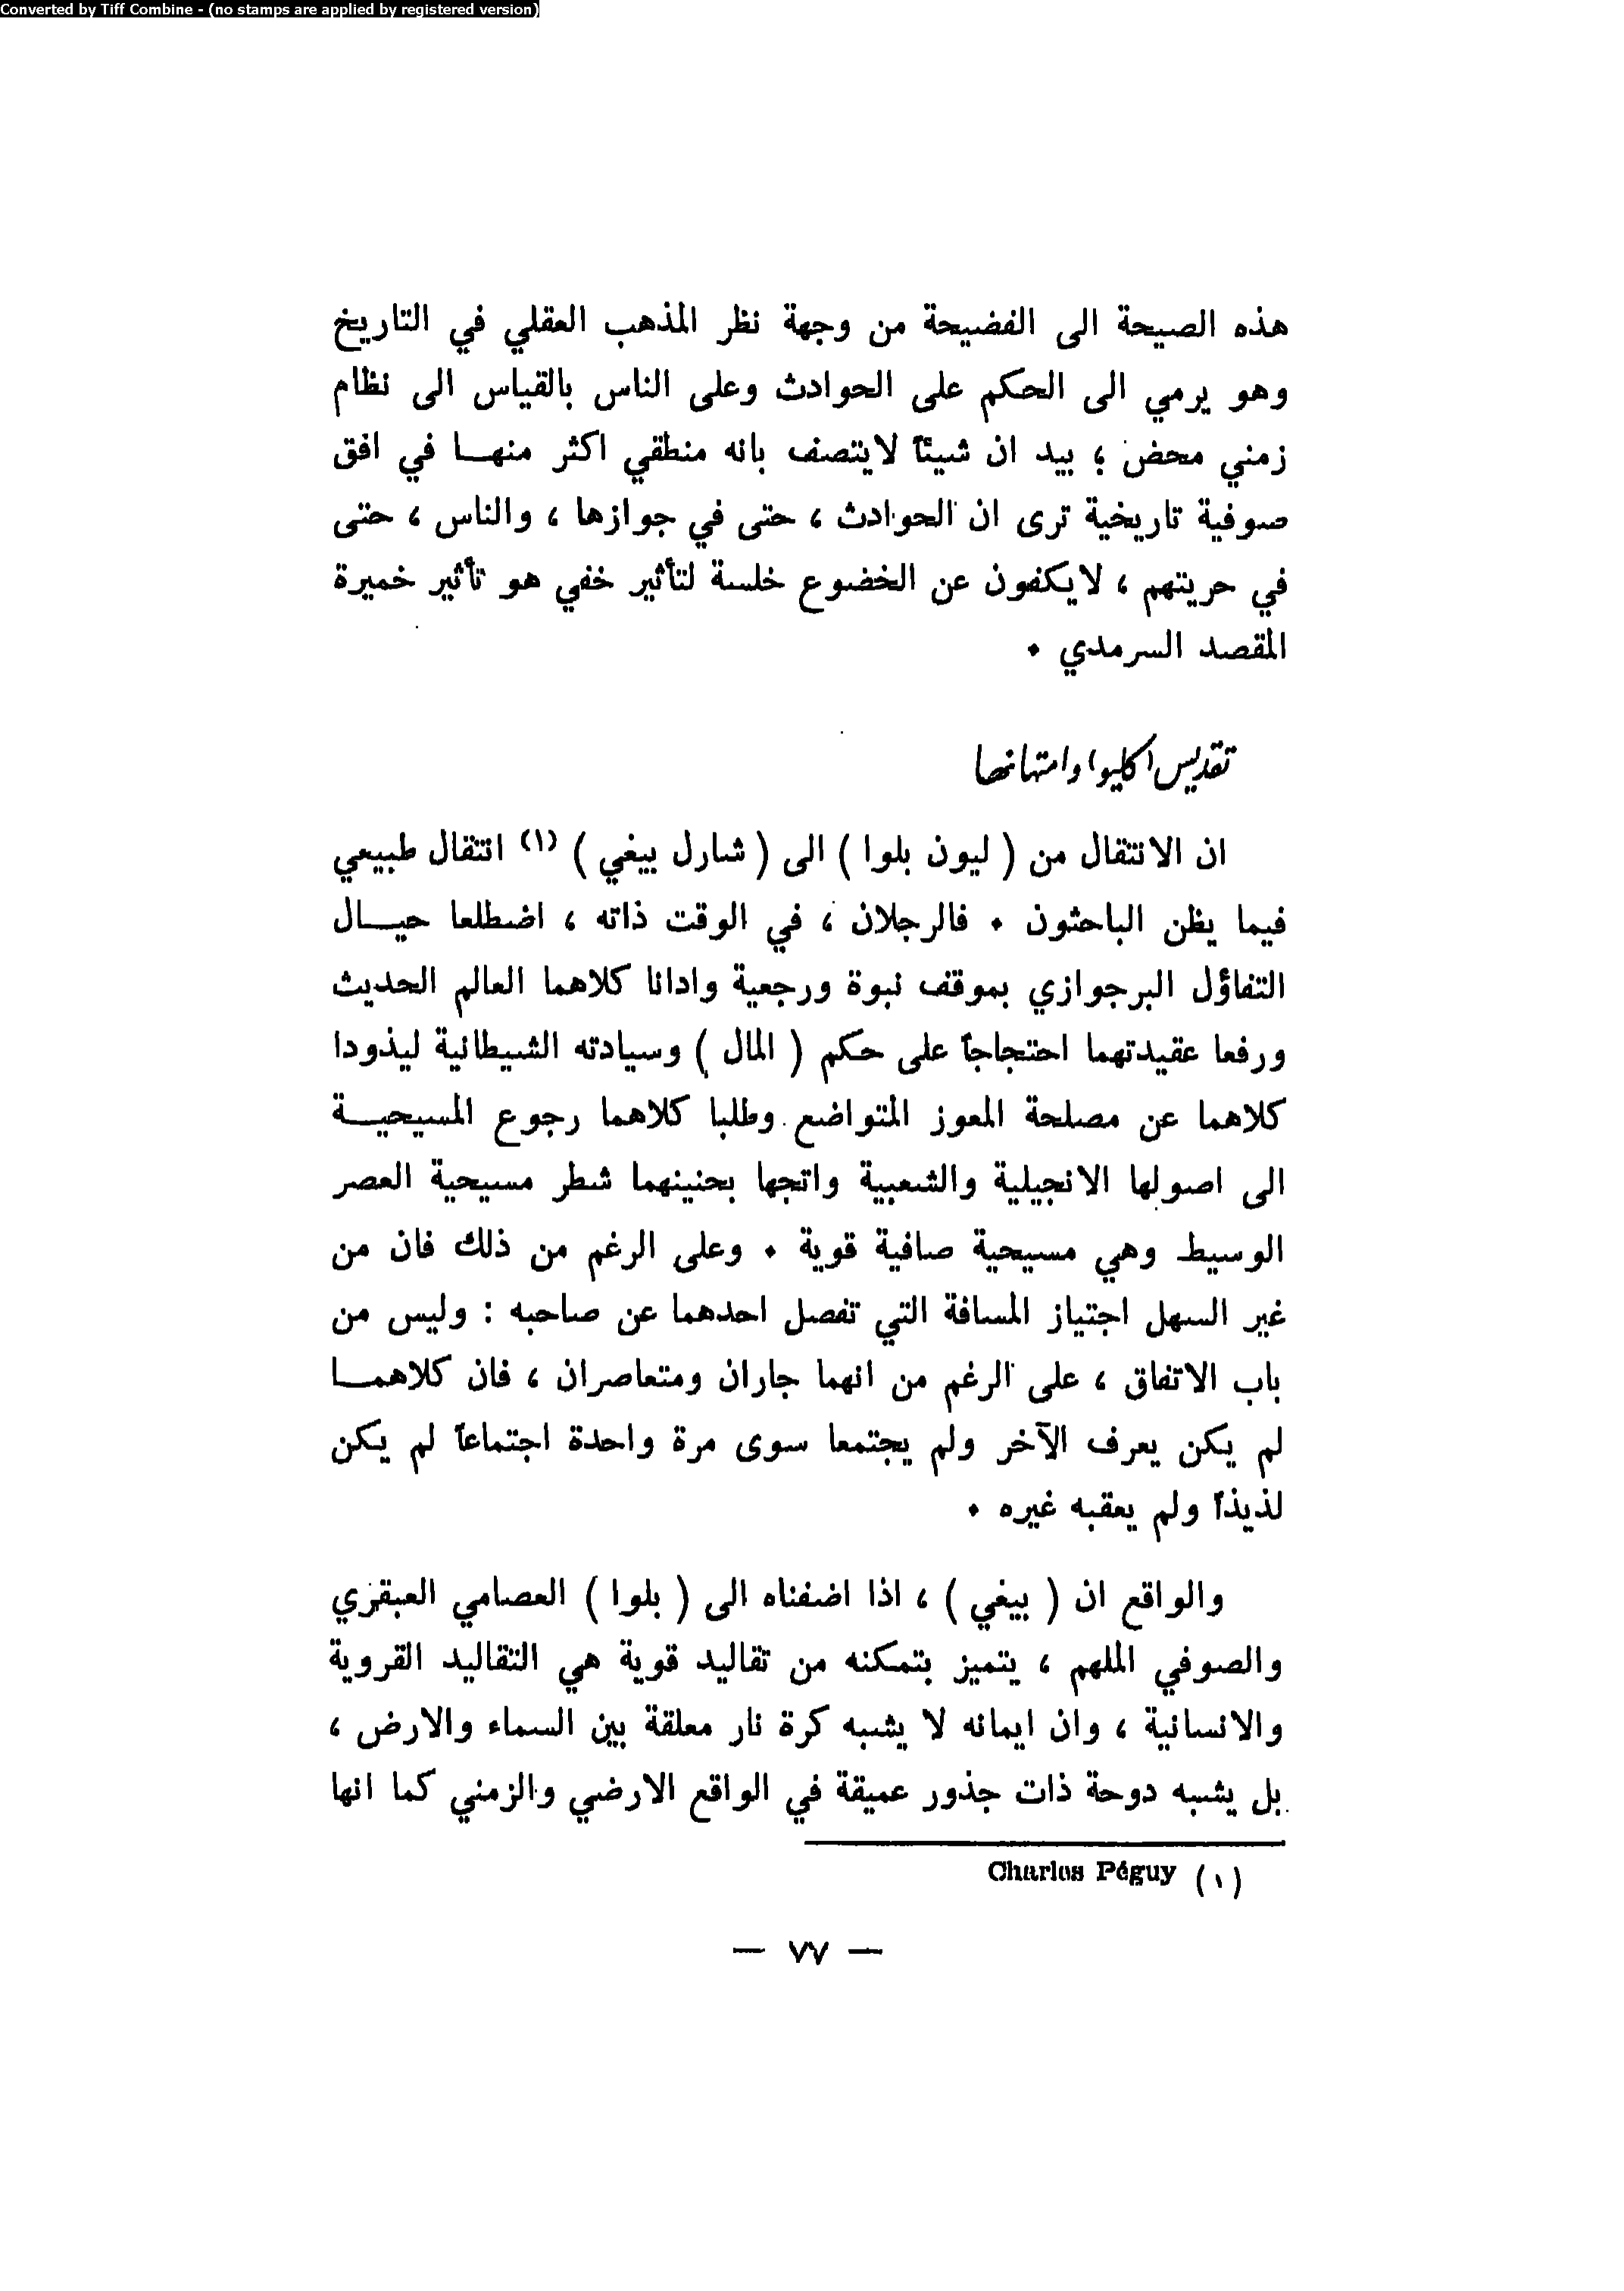 Converted by Tiff Combine - (no stamps are applied by registered version)
هذه الصيحة الى الفضيحة من وجهة نظر المذهب العقلي في التاريخ
وهو يرمي الى الحكم على الحوادث وعلى الناس بالقياس الى نظام
زمني محض ؛ بيد ان شيئاً لايتصف بانه منطقي اكثر منهـا في افق
صوفية تاريخية ترى ان الحوادث ، حتى في جوازها ، والناس ، حتى
في حريتهم ، لايكفون عن الخضوع خلسة لتأثير خفي هو تأثير خميرة
المقصد السرمدي ٠
تقديس (كليو) وامتهانها
ان الانتقال من ( ليون بلوا ) الى ( شارل بيغي ) (١) انتقال طبيعي
فيما يظن الباحثون ٠ فالرجلان ، في الوقت ذاته ، اضطلعا حيـال
التفاؤل البرجوازي بموقف نبوة ورجعية وادانا كلاهما العالم الحديث
ورفعا عقيدتهما احتجاجاً على حكم ( المال ) وسيادته الشيطانية ليذودا
كلاهما عن مصلحة المعوز المتواضع وطلبا كلاهما رجوع المسيحيـة
الى اصولها الانجيلية والشعبية واتجها بحنينهما شطر مسيحية العصر
الوسيط وهي مسيحية صافية قوية ٠ وعلى الرغم من ذلك فان من
غير السهل اجتياز المسافة التي تفصل احدهما عن صاحبه : وليس من
باب الاتفاق ، على الرغم من انهما جاران ومتعاصران ، فان كلاهمـا
لم يكن يعرف الآخر ولم يجتمعا سوى مرة واحدة اجتماعاً لم يكن
لذيذاً ولم يعقبه غيره ٠
والواقع ان ( بيغي ) ، اذا اضفناه الى ( بلوا ) العصامي العبقري
والصوفي الملهم ، يتميز بتمكنه من تقاليد قوية هي التقاليد القروية
والانسانية ، وان ايمانه لا يشبه كرة نار معلقة بين السماء والارض ،
بل يشبه دوحة ذات جذور عميقة في الواقع الارضي والزمني كما انها
(١) Charles Péguy
— ٧٧ —